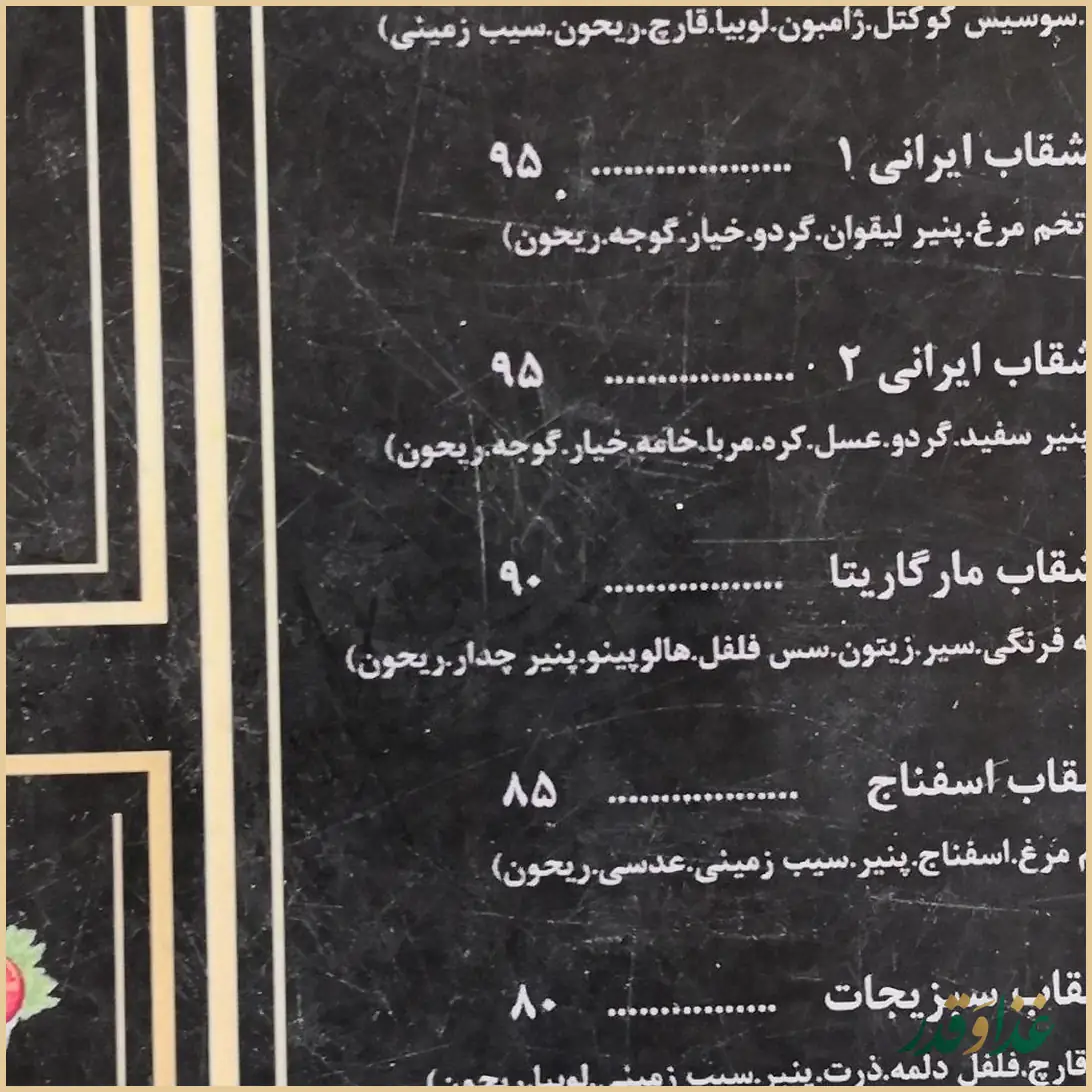 .سوسیس کوکتل.ژامبون.لوبیا.قارچ.ریحون.سیب زمینی)
شقاب ایرانی ۱ .................... ۹۵
تخم مرغ.پنیر لیقوان.گردو.خیار.گوجه.ریحون)
شقاب ایرانی ۲ .................... ۹۵
پنیر سفید.گردو.عسل.کره.مربا.خامه.خیار.گوجه.ریحون)
شقاب مارگاریتا .................... ۹۰
ه فرنگی.سیر.زیتون.سس فلفل.هالوپینو.پنیر چدار.ریحون)
قاب اسفناج .................... ۸۵
م مرغ.اسفناج.پنیر.سیب زمینی.عدسی.ریحون)
قاب سبزیجات .................... ۸۰
قارچ.فلفل دلمه.ذرت.پنیر.سیب زمینی.لوبیا.ریحون)
غذا و قدر